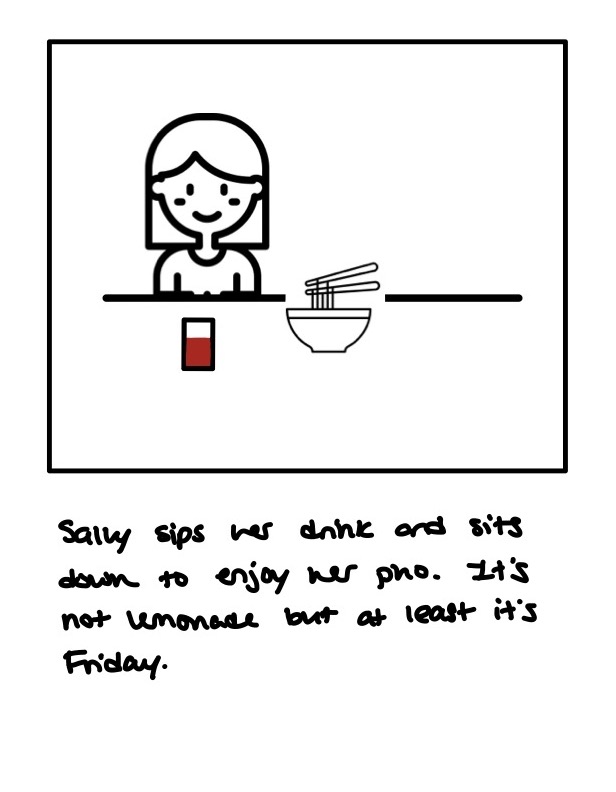 Sally sips her drink and sits
down to enjoy her pho. It's
not lemonade but at least it's
Friday.